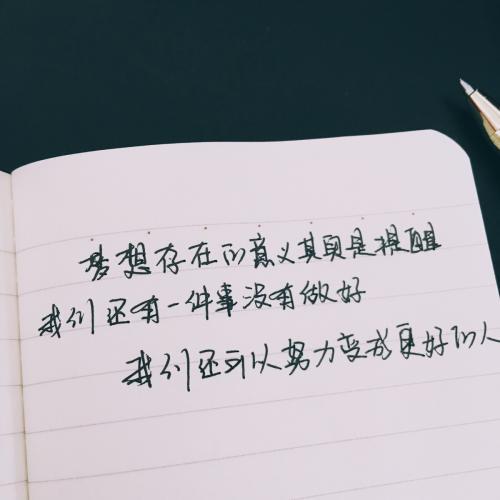 梦想存在的意义其实是提醒
我们还有一件事没有做好
我们还可以努力变成更好的人